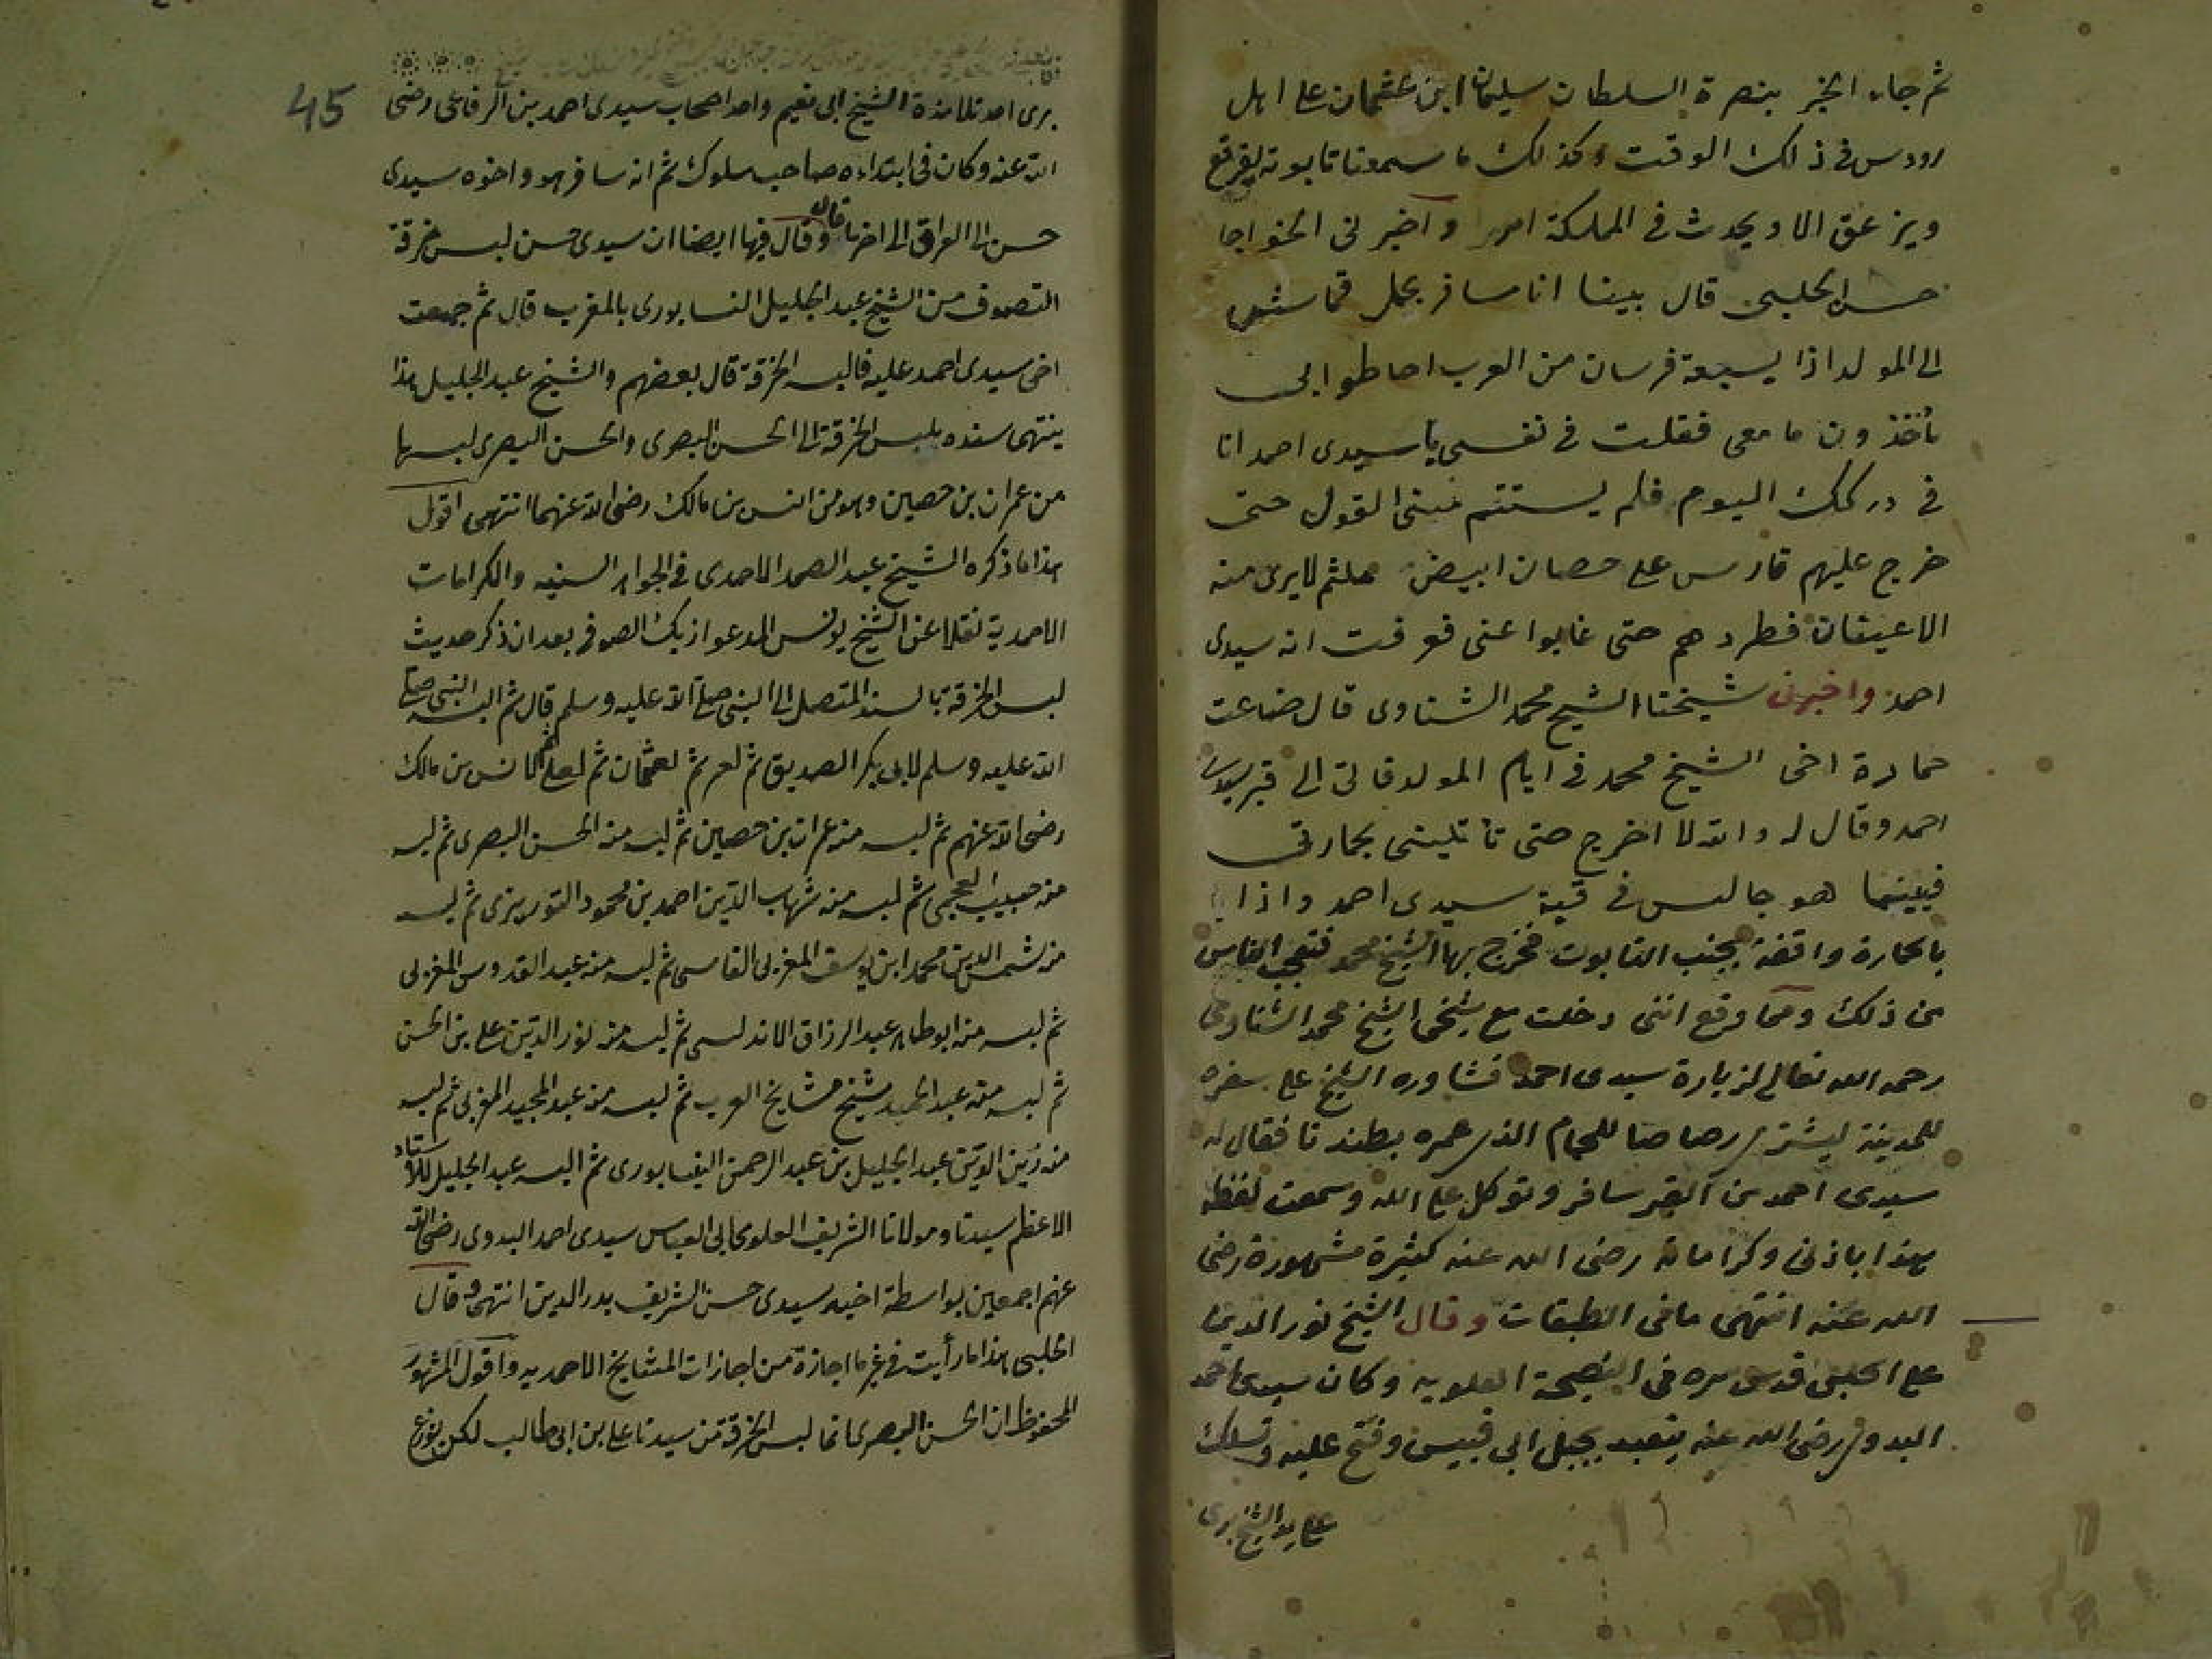 ثم جاء الخبر بنصرة السلطان سليمان ابن عثمان على اهل
رودس في ذلك الوقت وكذلك ما سمعنا تابوته يقرقع
ويزعق الا ويحدث في المملكة امرا واخبرني الخواجا
حسن الحلبي قال بينا انا مسافر بحمل قماش
الى المولد اذا بسبعة فرسان من العرب احاطوا بي
يأخذون ما معي فقلت في نفسي يا سيدي احمد انا
في دركك اليوم فلم يستتم مني القول حتى
خرج عليهم فارس على حصان ابيض ملثم لا يرى منه
الا عينان فطردهم حتى غابوا عني فعرفت انه سيدي
احمد واخبرني شيخنا الشيخ محمد الشناوي قال ضاعت
حمارة اخي الشيخ محمد في ايام المولد فاتى الى قبر سيدي
احمد وقال له والله لا اخرج حتى تأتيني بحمارتي
فبينما هو جالس في قبة سيدي احمد واذا
بالحمارة واقفة بجنب التابوت فخرج بها الشيخ محمد فتعجب الناس
من ذلك ومما وقع انني دخلت مع شيخي الشيخ محمد الشناوي
رحمه الله تعالى لزيارة سيدي احمد فشاوره الشيخ على سفره
للمدينة ليشتري رصاصا للحمام الذي عمره بطندتا فقال له
سيدي احمد من القبر سافر وتوكل على الله وسمعت لفظه
هذا باذني وكراماته رضي الله عنه كثيرة مشهورة رضي
الله عنه انتهى ما في الطبقات وقال الشيخ نور الدين
على الحلبي قدس سره في النصيحة العلوية وكان سيدي احمد
البدوي رضي الله عنه يتعبد بجبل ابي قبيس وفتح عليه وتسلك
على يد الشيخ بري
45
بري احد تلامذة الشيخ ابي نعيم واحد اصحاب سيدي احمد بن الرفاعي رضي
الله عنه وكان في ابتداءه صاحب سلوك ثم انه سافر هو واخوه سيدي
حسن الى العراق الى اخر ما قال وقال فيها ايضا ان سيدي حسن لبس خرقة
التصوف من الشيخ عبد الجليل النسابوري بالمغرب قال ثم جمعت
اخي سيدي احمد عليه فالبسه الخرقة قال بعضهم والشيخ عبد الجليل هذا
ينتهي سنده بلبس الخرقة الى الحسن البصري والحسن البصري لبسها
من عمران بن حصين وهو من انس بن مالك رضي الله عنهما انتهى اقول
هذا ما ذكره الشيخ عبد الصمد الاحمدي في الجواهر السنيه والكرامات
الاحمدية نقلا عن الشيخ يونس المدعو ازبك الصوفي بعد ان ذكر حديث
لبس الخرقة بالسند المتصل الى النبي صلى الله عليه وسلم قال ثم البسه النبي صلى
الله عليه وسلم لابي بكر الصديق ثم لعمر ثم لعثمان ثم لعلي ثم لانس بن مالك
رضي الله عنهم ثم لبسه منه عمران بن حصين ثم لبسه منه الحسن البصري ثم لبسه
منه حبيب العجمي ثم لبسه منه شهاب الدين احمد بن محمود التوريزي ثم لبسه
منه شمس الدين محمد ابن يوسف المغربي الفاسي ثم لبسه منه عبد القدوس المغربي
ثم لبسه منه ابو طاهر عبد الرزاق الاندلسي ثم لبسه منه نور الدين على بن الحسن
ثم لبسه منه عبد الحميد شيخ مشايخ العرب ثم لبسه منه عبد المجيد المغربي ثم لبسه
منه زين الدين عبد الجليل بن عبد الرحمن النيسابوري ثم البسه عبد الجليل للاستاد
الاعظم سيدنا ومولانا الشريف العلوي ابي العباس سيدي احمد البدوي رضي الله
عنهم اجمعين بواسطة اخيه سيدي حسن الشريف بدر الدين انتهى وقال
الحلبي هذا ما رأيت في غير ما اجازة من اجازات المشايخ الاحمديه واقول المشهور
المحفوظ ان الحسن البصري انما لبس الخرقة من سيدنا على بن ابي طالب لكن نوزع